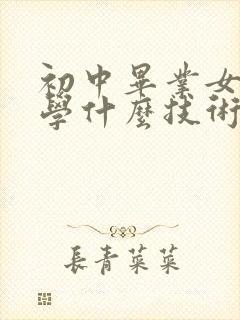 初中畢業女
學什麼技術
長青菜菜